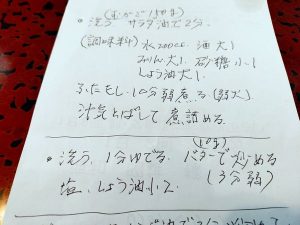 (むかご150g)
• 洗う サラダ油で2分.
(調味料) 水200cc. 酒大1
みりん大1. 砂糖小1
しょう油大1.
ふたをし. 10分弱煮る(弱火)
汁気とばして煮詰める
(10g)
• 洗う. 1分ゆでる. バターで炒める
(3分弱)
塩. しょう油小2.